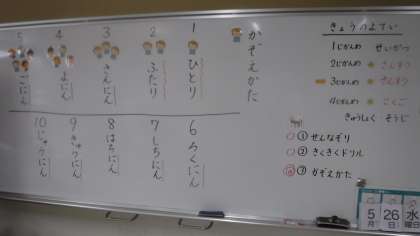 かぞえかた
1 ひとり
2 ふたり
3 さんにん
4 よにん
5 ごにん
6 ろくにん
7 しちにん
8 はちにん
9 きゅうにん
10 じゅうにん
きょうのよてい
1じかんめ せいかつ
2じかんめ さんすう
3じかんめ さんすう
4じかんめ こくご
きゅうしょく そうじ
① せんなぞり
② さくさくドリル
③ かぞえかた
5月 26日 水曜日